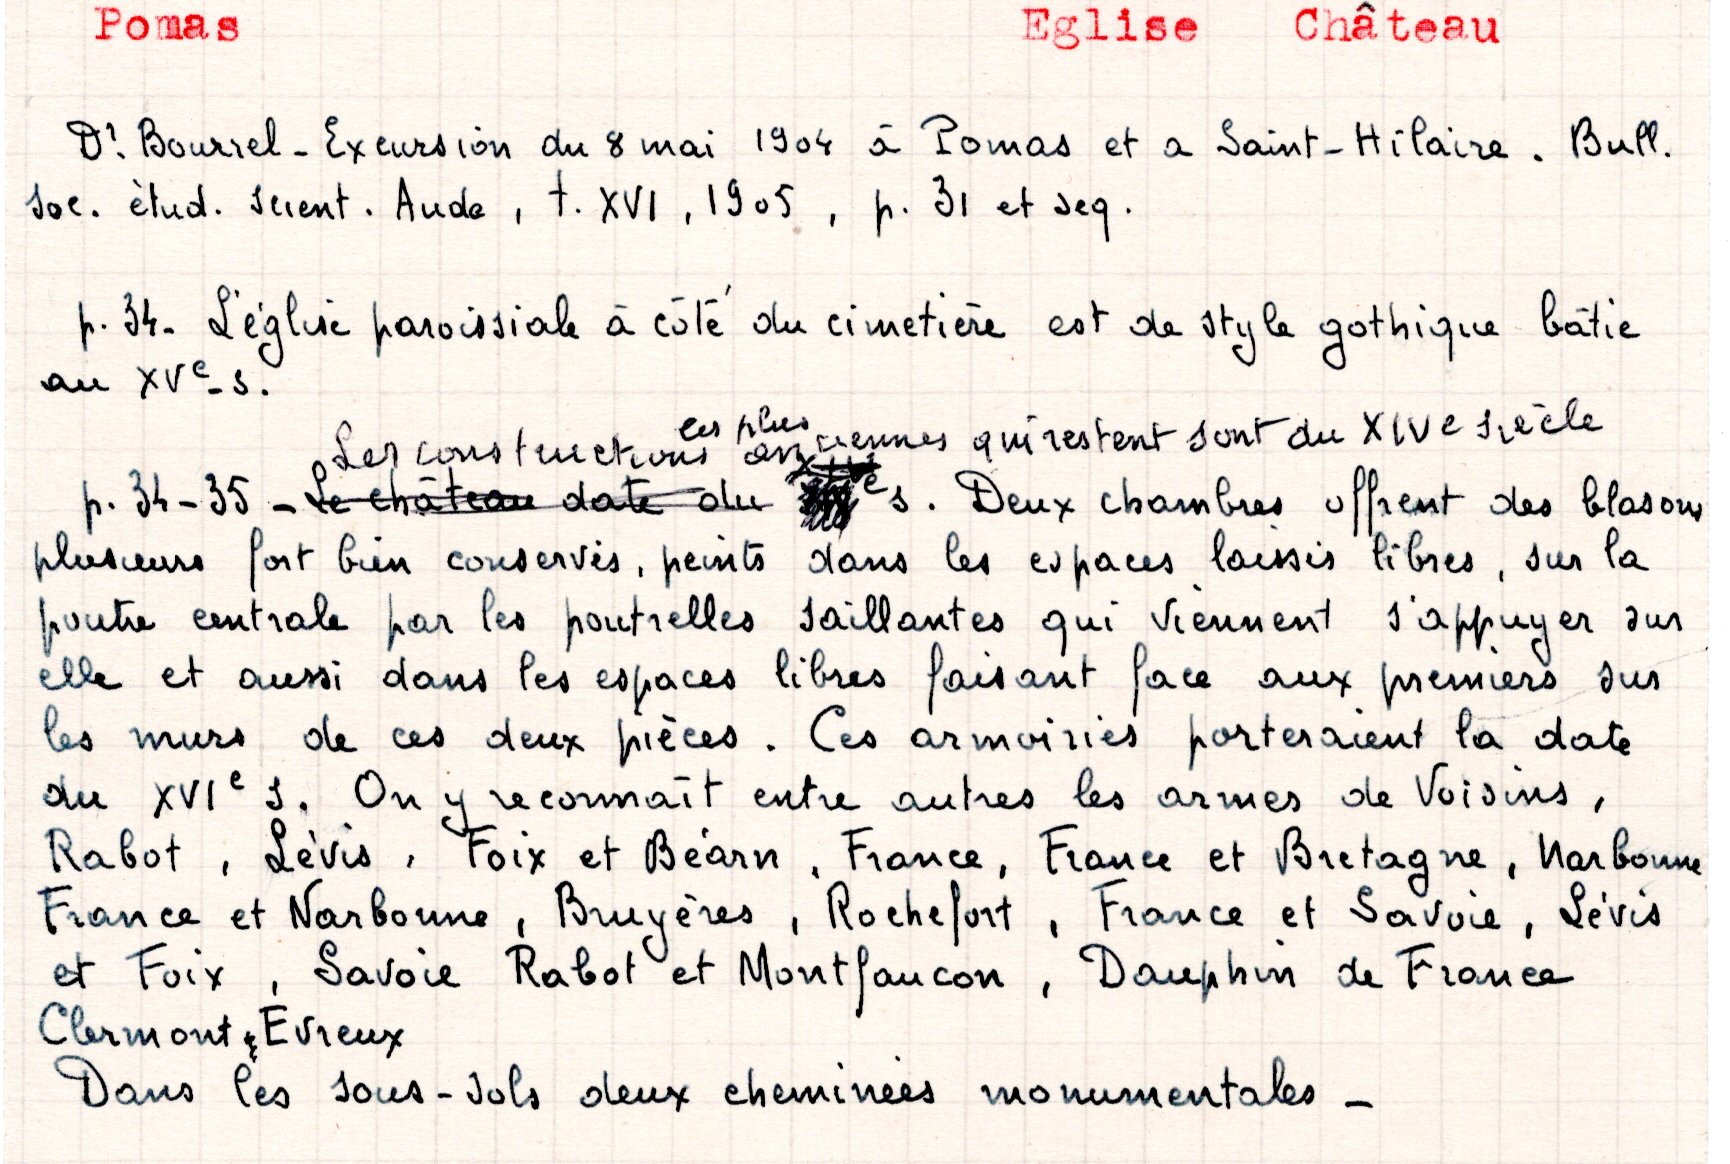 Pomas Eglise Château
Dr. Bourrel - Excursion du 8 mai 1904 à Pomas et a Saint-Hilaire. Bull.
soc. étud. scient. Aude, t. XVI, 1905, p. 31 et seq.
p. 34 - L'église paroissiale à côté du cimetière est de style gothique bâtie
au XVe s.
Les constructions les plus anciennes qui restent sont du XIVe siècle
p. 34-35 - Le château date du e s. Deux chambres offrent des blasons
plusieurs fort bien conservés, peints dans les espaces laissés libres, sur la
poutre centrale par les poutrelles saillantes qui viennent s'appuyer sur
elle et aussi dans les espaces libres faisant face aux premiers sur
les murs de ces deux pièces. Ces armoiries porteraient la date
du XVIe s. On y reconnaît entre autres les armes de Voisins,
Rabot, Lévis, Foix et Béarn, France, France et Bretagne, Narbonne
France et Narbonne, Bruyères, Rochefort, France et Savoie, Lévis
et Foix, Savoie Rabot et Montfaucon, Dauphin de France
Clermont, Evreux
Dans les sous-sols deux cheminées monumentales -